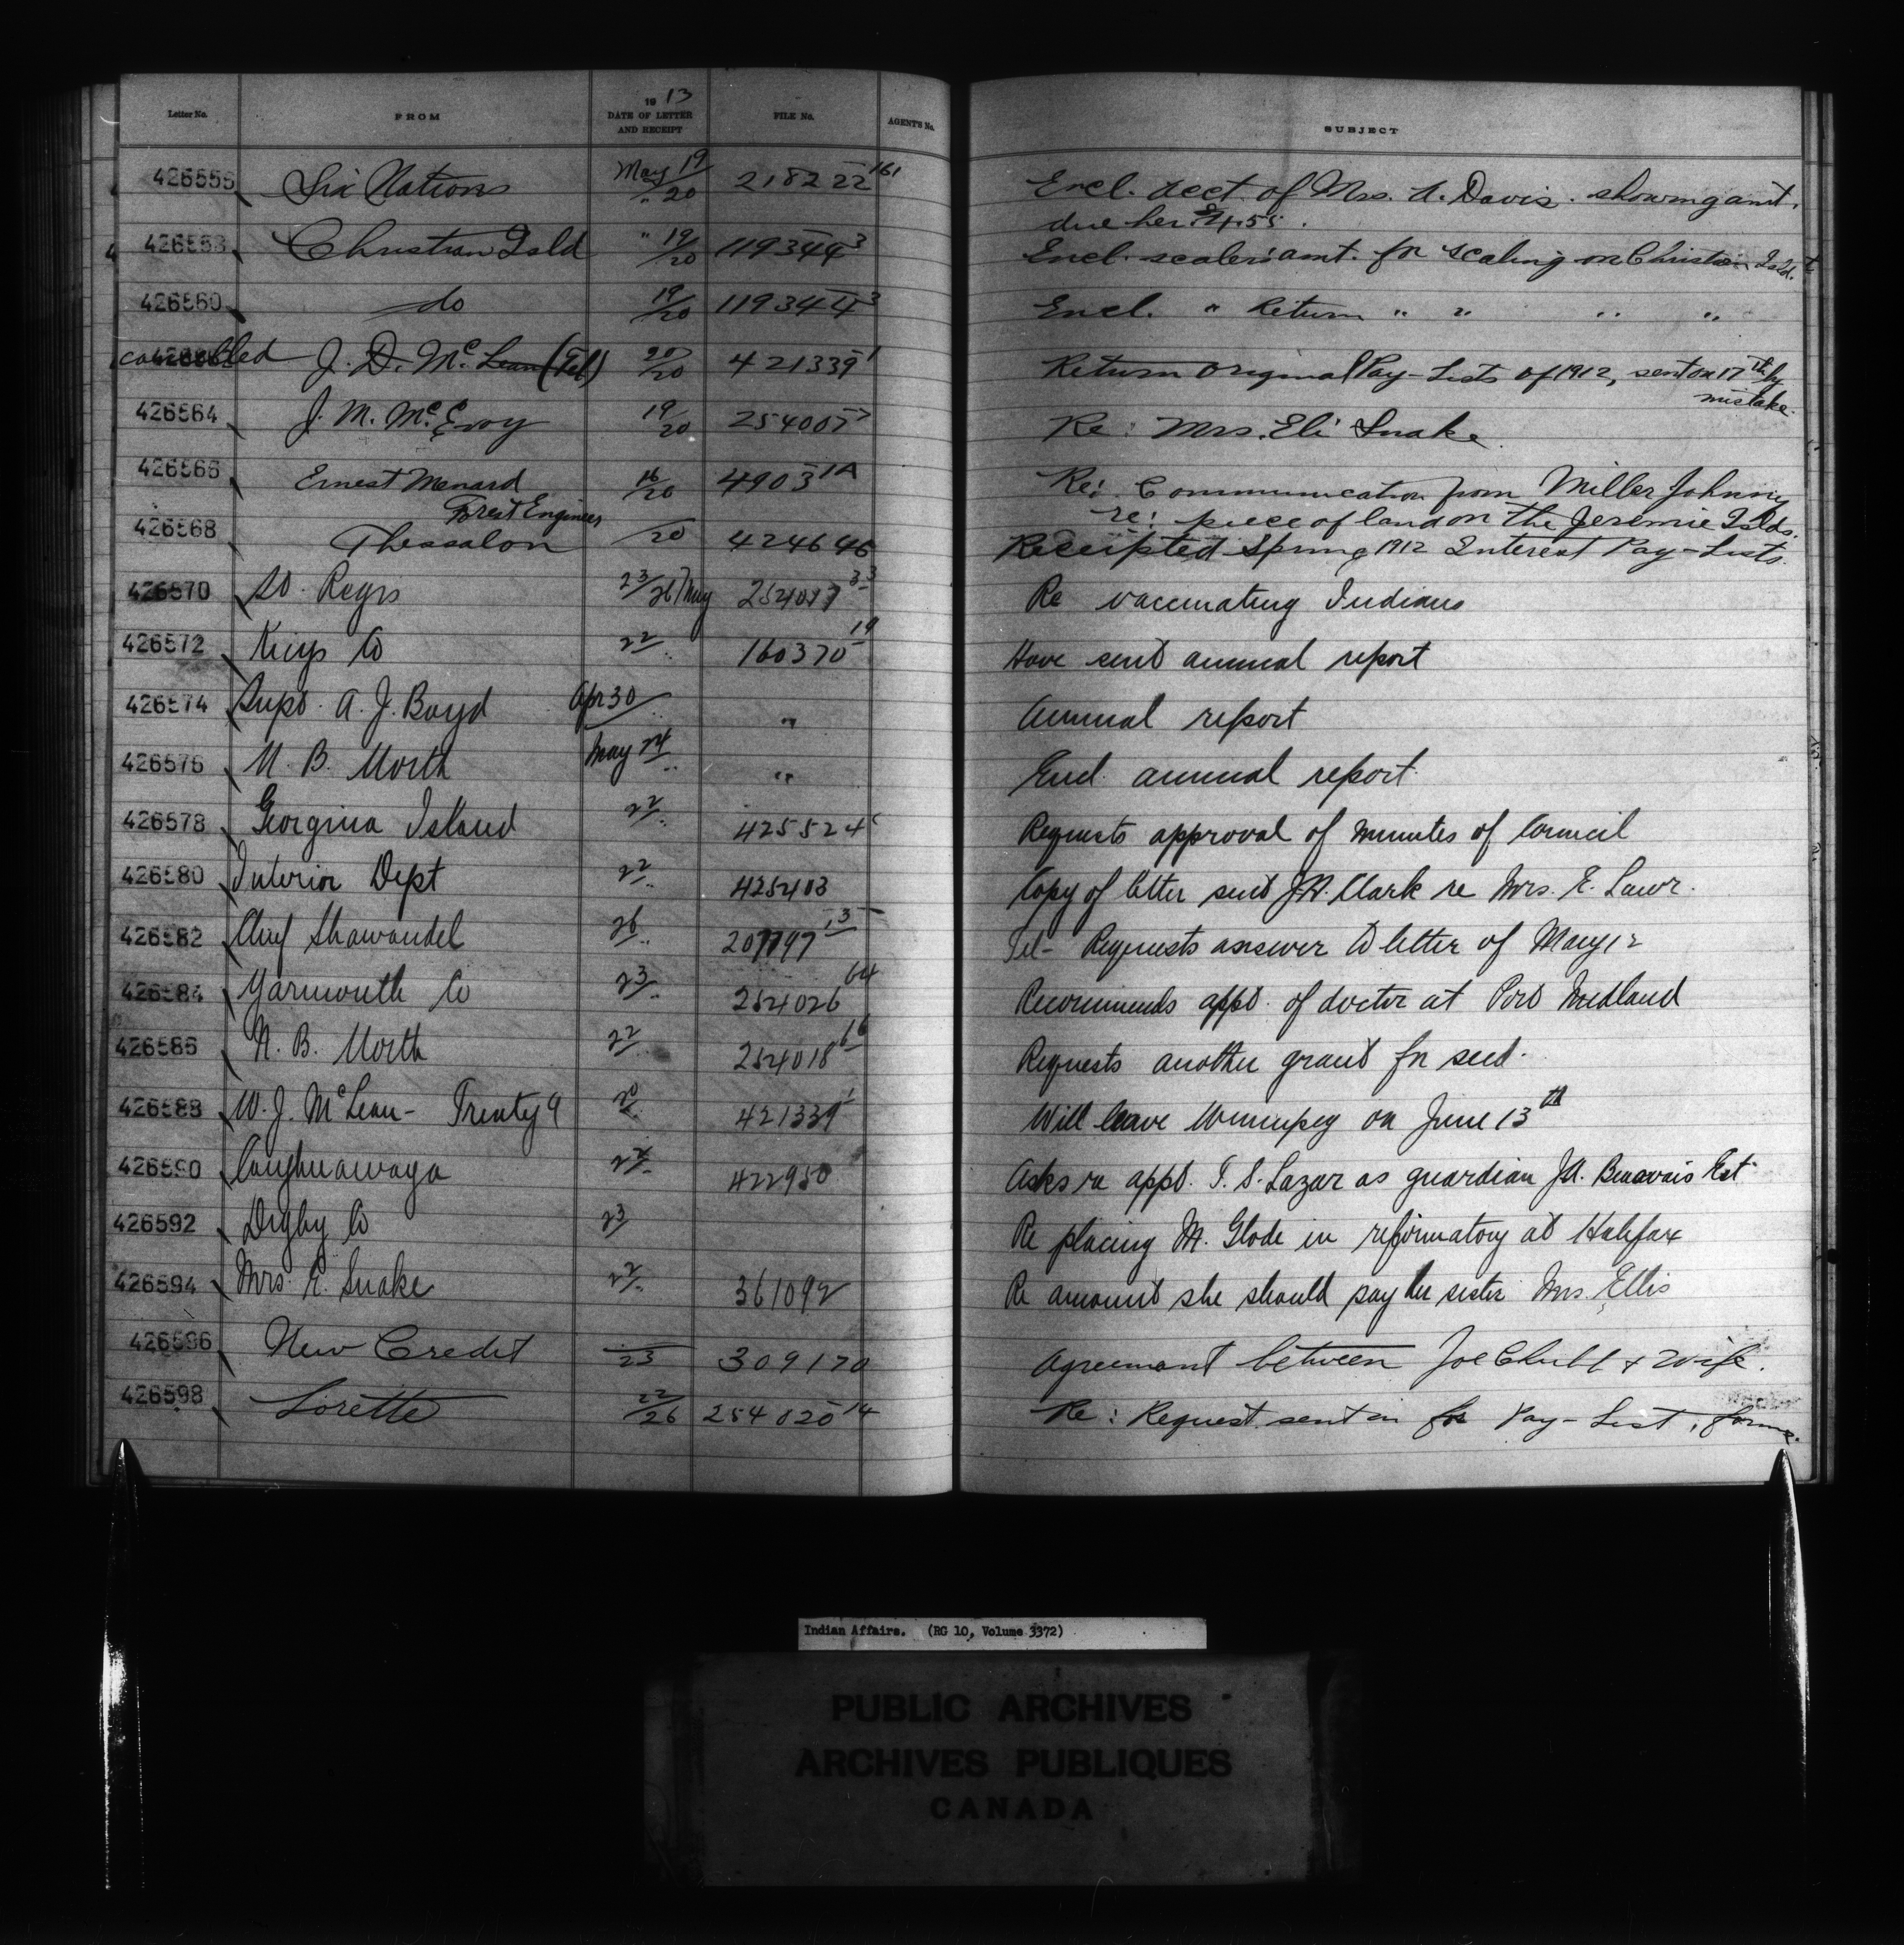 Letter No. FROM 1913 DATE OF LETTER AND RECEIPT FILE No. AGENT'S No. SUBJECT
426556 Six Nations May 19/" 20 218222-161 Encl. acct. of Mrs. A. Davis. showing amt.
due her $4.55.
426558 Christian Isld " 19/20 119344-3 Encl. scalers' amt. for scaling on Christian Isld.
426560 do 19/20 119344-3 Encl. " Return " " " "
cancelled J. D. McLean (Tel) 20/20 421339-1 Return Original Pay-Lists of 1912, sent on 17th by
mistake.
426564 J. M. McEvoy 19/20 254005-7 Re: Mrs. Eli Snake
426566 Ernest Menard 16/20 4903-1A Re: Communication from Miller Johnny
Forest Engineer re: piece of land on the Jeremie Islds.
426568 Thessalon —/20 424646 Receipted Spring 1912 Interest Pay-Lists.
426570 St. Regis 23/26 May 254017-33 Re vaccinating Indians
426572 Kings Co 22/" 160370-19 Have sent annual report
426574 Supt. A. J. Boyd Apr 30/" " Annual report
426576 N. B. North May 24/" " Encl. annual report.
426578 Georgina Island 22/" 425524 Requests approval of minutes of Council
426580 Interior Dept 22/" 425403 Copy of letter sent J.H. Clark re Mrs. E. Lawr.
426582 Chief Shawandel 26/" 207797-13 Tel- Requests answer to letter of May 12
426584 Yarmouth Co 23/" 254026-64 Recommends appt. of doctor at Port Medland
426586 N. B. North 22/" 254018-66 Requests another grant for seed.
426588 W. J. McLean - Treaty 9 421339-1 Will leave Winnipeg on June 13th
426590 Caughnawaga 422950 Asks re appt. T. S. Lazar as guardian J.A. Beauvais Est
426592 Digby Co 23 Re placing M. Glode in reformatory at Halifax
426594 Mrs. E. Snake 22/" 361092 Re amount she should pay her sister Mrs. Ellis
426596 New Credit —/23 309170 Agreement between Joe Chubb & Wife.
426598 Lorette 22/26 254020-14 Re: Request sent in for Pay-List, forms.
Indian Affairs. (RG 10, Volume 3372)
PUBLIC ARCHIVES
ARCHIVES PUBLIQUES
CANADA